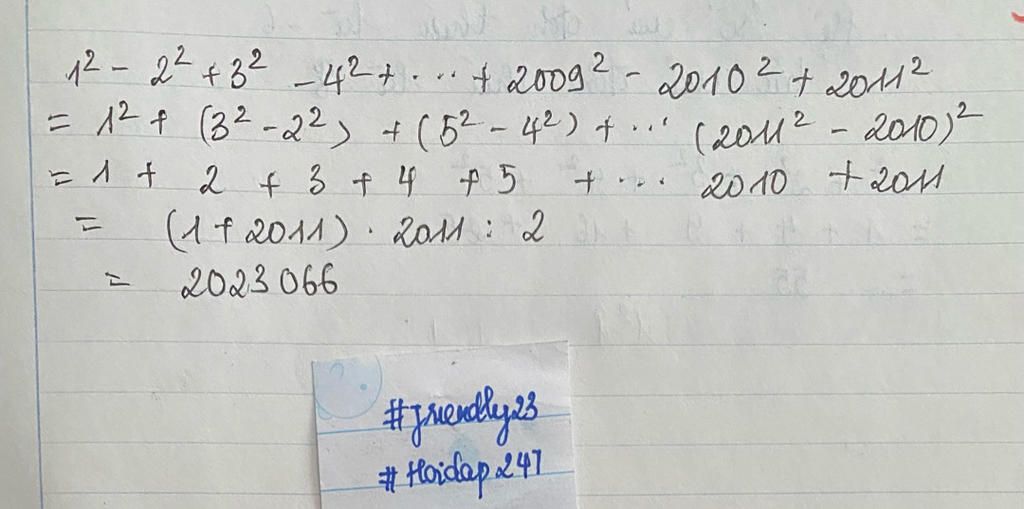 1² - 2² + 3² - 4² + ... + 2009² - 2010² + 2011²
= 1² + (3² - 2²) + (5² - 4²) + ... (2011² - 2010)²
= 1 + 2 + 3 + 4 + 5 + ... 2010 + 2011
= (1 + 2011) . 2011 : 2
= 2023066
#friendly23
#Hoidap247